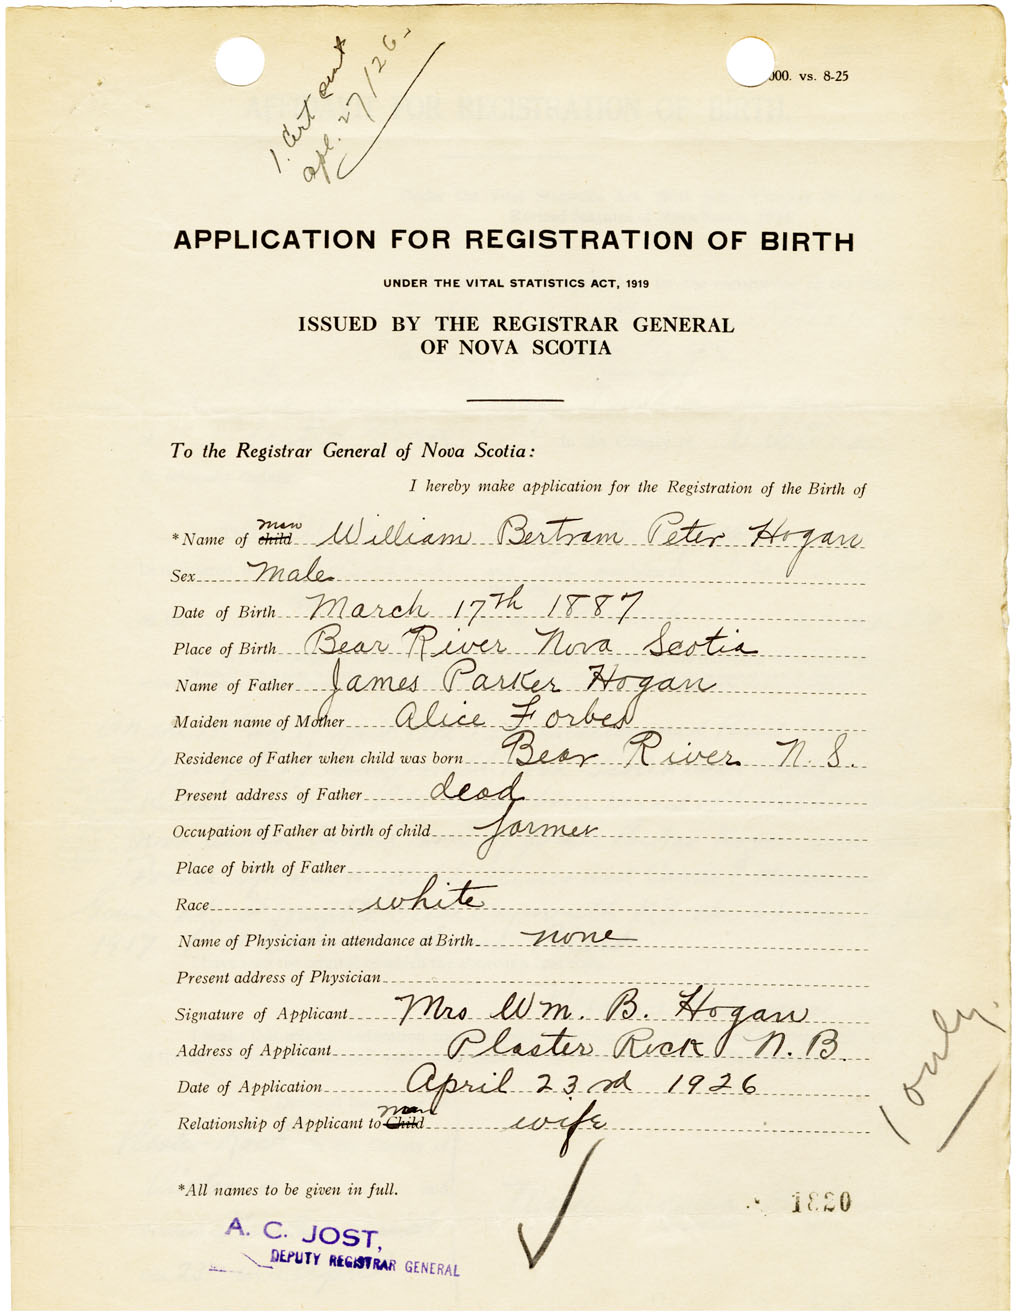 1. Cert sent
apl. 27/26.
000. vs. 8-25
APPLICATION FOR REGISTRATION OF BIRTH
UNDER THE VITAL STATISTICS ACT, 1919
ISSUED BY THE REGISTRAR GENERAL
OF NOVA SCOTIA
To the Registrar General of Nova Scotia:
I hereby make application for the Registration of the Birth of
man
*Name of child William Bertram Peter Hogan
Sex Male
Date of Birth March 17th 1887
Place of Birth Bear River Nova Scotia
Name of Father James Parker Hogan
Maiden name of Mother Alice Forbes
Residence of Father when child was born Bear River N. S.
Present address of Father dead
Occupation of Father at birth of child farmer
Place of birth of Father
Race white
Name of Physician in attendance at Birth none
Present address of Physician
Signature of Applicant Mrs Wm. B. Hogan
Address of Applicant Plaster Rock N. B.
Date of Application April 23rd 1926
man
Relationship of Applicant to Child wife
1 only.
*All names to be given in full.
1820
A. C. JOST,
DEPUTY REGISTRAR GENERAL